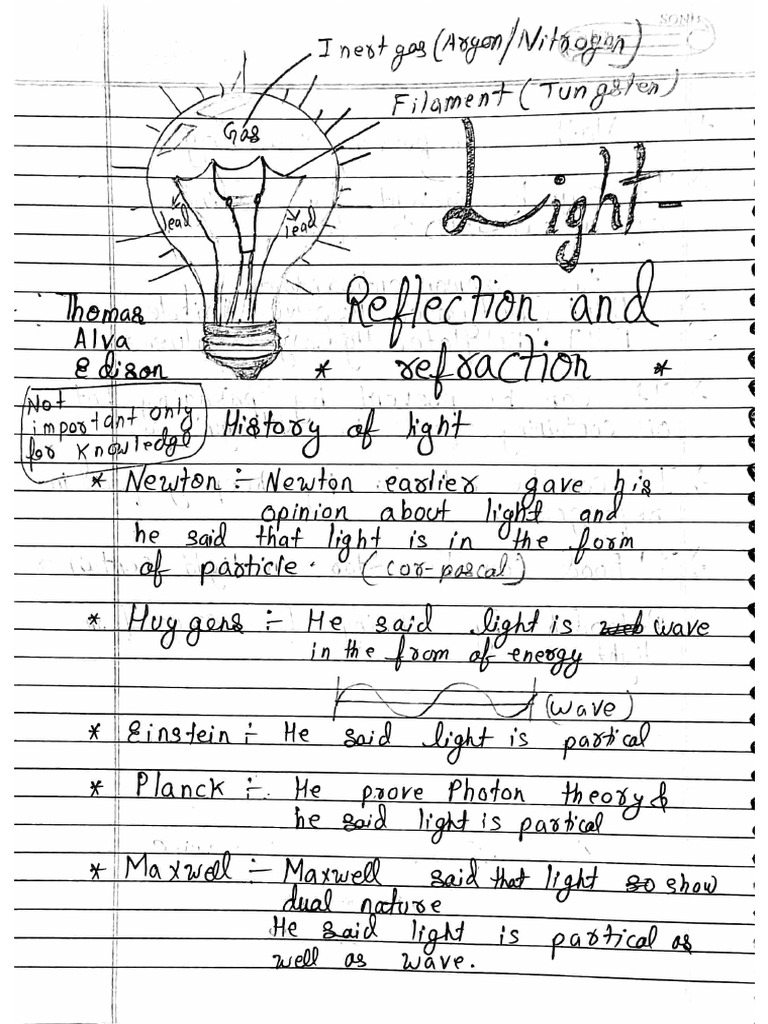 Inert gas (Argon/Nitrogen)
Filament (Tungsten)
Gas
lead
lead
Light -
Reflection and
* refraction *
Thomas
Alva
Edison
Not
important only
for Knowledge
History of light
* Newton :- Newton earlier gave his
opinion about light and
he said that light is in the form
of particle. (cor-pascal)
* Huygens :- He said light is wave
in the from of energy
(wave)
* Einstein :- He said light is partical
* Planck :- He prove Photon theory &
he said light is partical
* Maxwell :- Maxwell said that light so show
dual nature
He said light is partical as
well as wave.